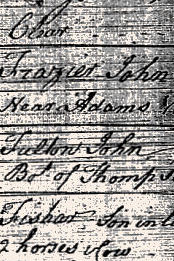 Char
Frazier John
Near Adams
Fulton John
Bot. of Thomps
Fisher Son in l
2 horses 1 Cow